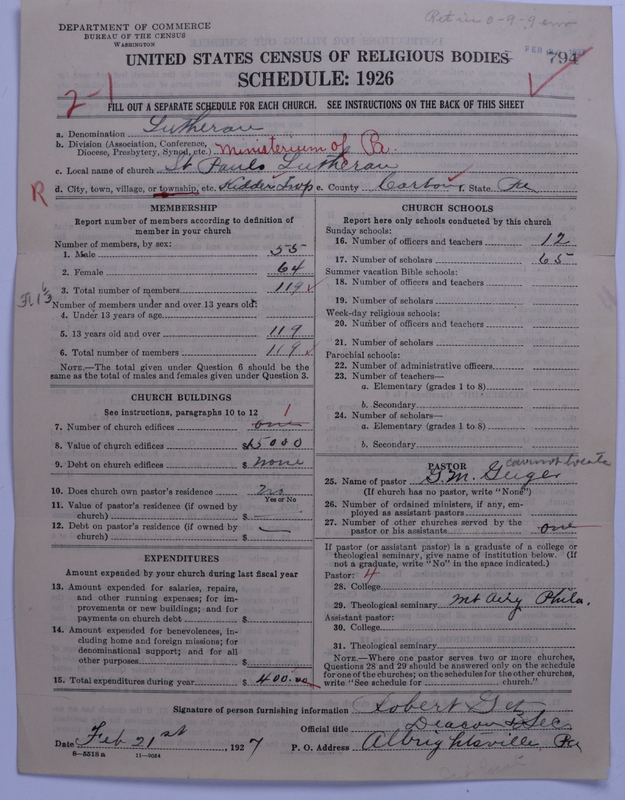 DEPARTMENT OF COMMERCE
BUREAU OF THE CENSUS
WASHINGTON
UNITED STATES CENSUS OF RELIGIOUS BODIES
794
SCHEDULE: 1926
2-1
FILL OUT A SEPARATE SCHEDULE FOR EACH CHURCH. SEE INSTRUCTIONS ON THE BACK OF THIS SHEET
a. Denomination Lutheran
b. Division (Association, Conference,
Diocese, Presbytery, Synod, etc.) Ministerium of Pa.
c. Local name of church St Pauls Lutheran
R d. City, town, village, or township, etc. Kidder Twp e. County Carbon f. State Pa
MEMBERSHIP
Report number of members according to definition of
member in your church
Number of members, by sex:
1. Male 55
2. Female 64
3. Total number of members 119
Number of members under and over 13 years old:
4. Under 13 years of age
5. 13 years old and over 119
6. Total number of members 119
NOTE.—The total given under Question 6 should be the
same as the total of males and females given under Question 3.
CHURCH BUILDINGS
See instructions, paragraphs 10 to 12
1
7. Number of church edifices one
8. Value of church edifices $5000
9. Debt on church edifices $ none
10. Does church own pastor's residence No
Yes or No
11. Value of pastor's residence (if owned by
church) $
12. Debt on pastor's residence (if owned by
church) $
EXPENDITURES
Amount expended by your church during last fiscal year
13. Amount expended for salaries, repairs,
and other running expenses; for im-
provements or new buildings; and for
payments on church debt $
14. Amount expended for benevolences, in-
cluding home and foreign missions; for
denominational support; and for all
other purposes $
15. Total expenditures during year $ 400.00
CHURCH SCHOOLS
Report here only schools conducted by this church
Sunday schools:
16. Number of officers and teachers 12
17. Number of scholars 65
Summer vacation Bible schools:
18. Number of officers and teachers
19. Number of scholars
Week-day religious schools:
20. Number of officers and teachers
21. Number of scholars
Parochial schools:
22. Number of administrative officers
23. Number of teachers—
a. Elementary (grades 1 to 8)
b. Secondary
24. Number of scholars—
a. Elementary (grades 1 to 8)
b. Secondary
PASTOR
cannot locate
25. Name of pastor G. M. Geiger
(If church has no pastor, write "None")
26. Number of ordained ministers, if any, em-
ployed as assistant pastors
27. Number of other churches served by the
pastor or his assistants one
If pastor (or assistant pastor) is a graduate of a college or
theological seminary, give name of institution below. (If
not a graduate, write "No" in the space indicated.)
Pastor: 4
28. College
29. Theological seminary Mt Airy Phila.
Assistant pastor:
30. College
31. Theological seminary
NOTE.—Where one pastor serves two or more churches,
Questions 28 and 29 should be answered only on the schedule
for one of the churches; on the schedules for the other churches,
write "See schedule for church."
Signature of person furnishing information Robert
Official title Deacon & Sec
Date Feb 21st, 1927 P. O. Address Albrightsville, Pa
8—5518 a 11—9054